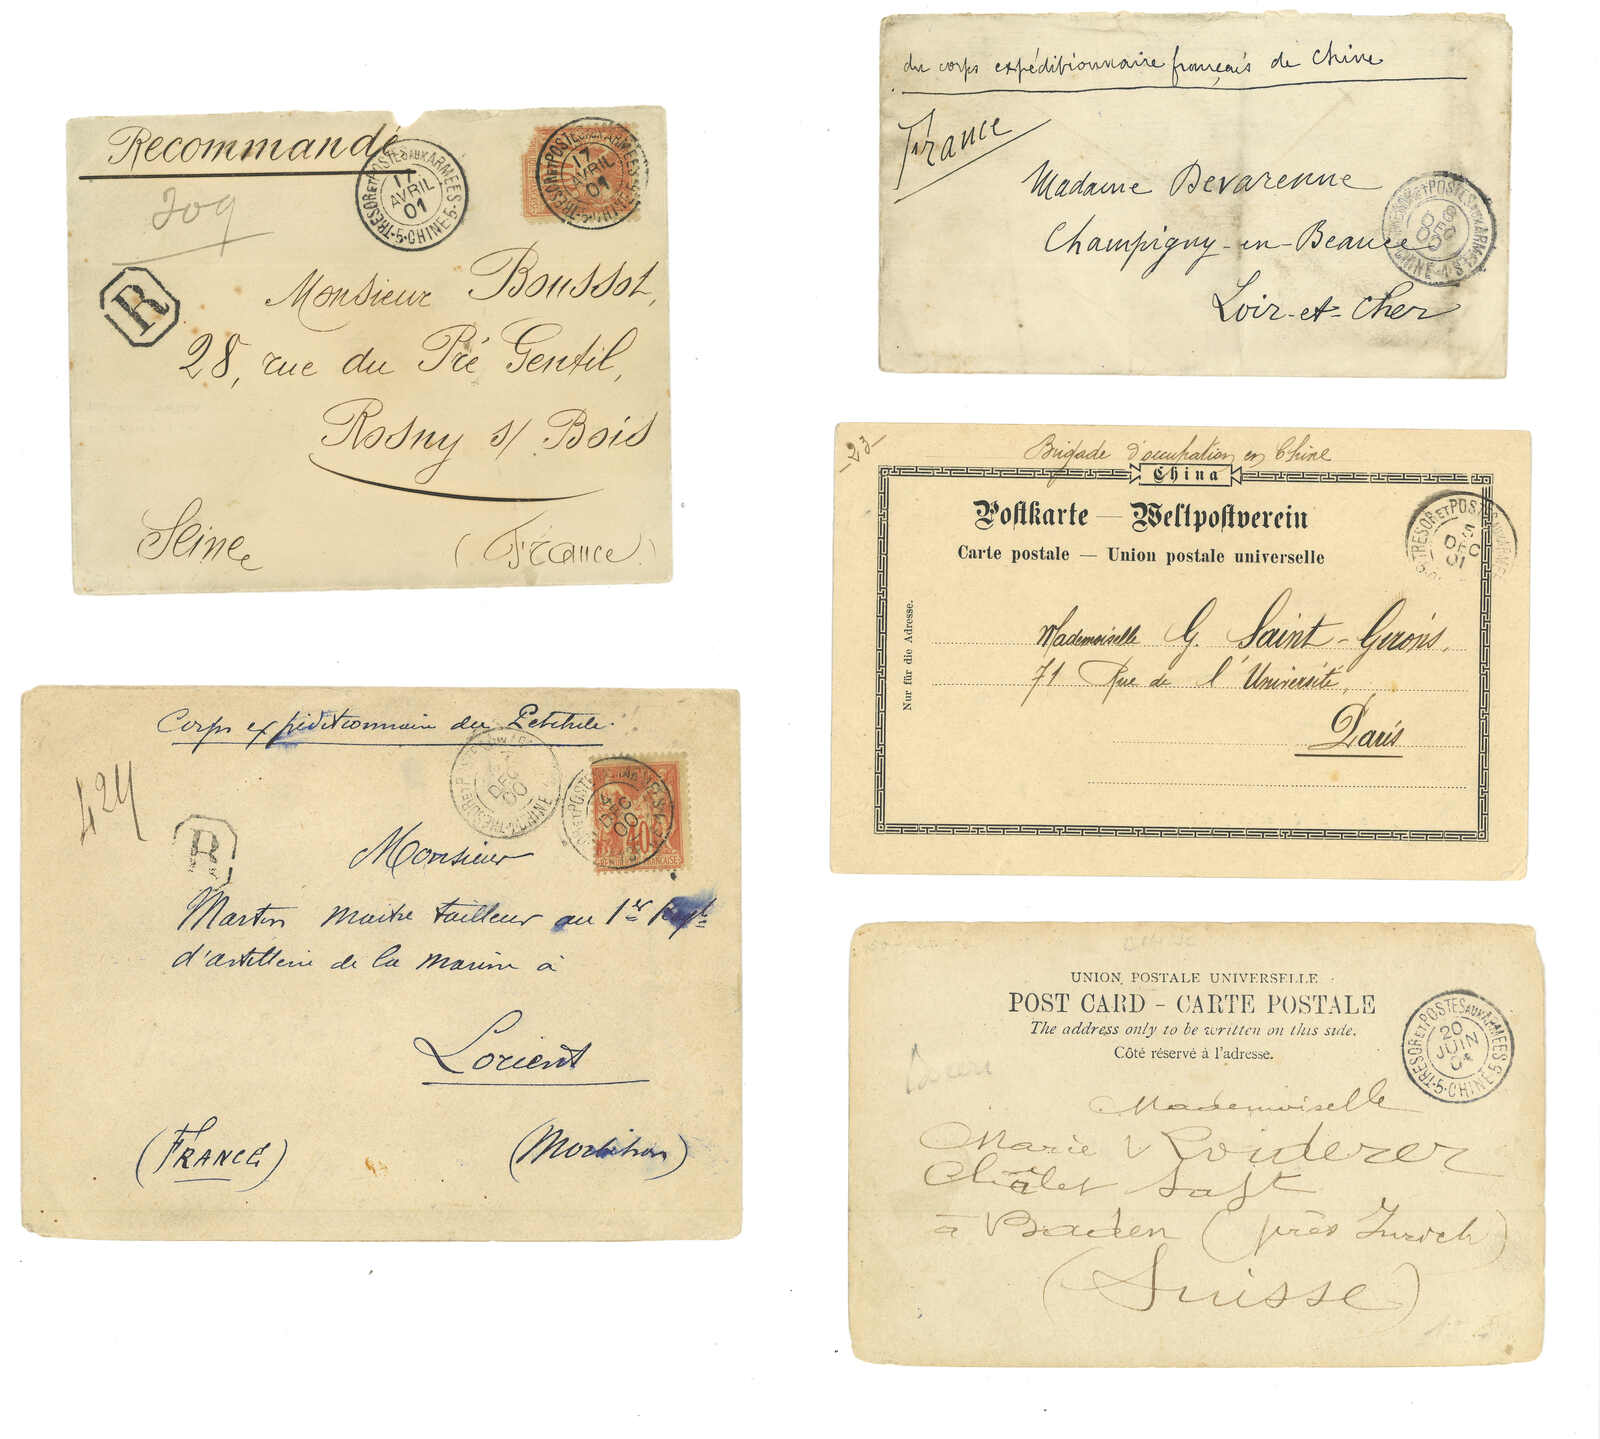 Recommandé
209
TRESOR ET POSTES AUX ARMEES
17
AVRIL
01
5 · CHINE · 5
TRESOR ET POSTES AUX ARMEES
17
AVRIL
01
R
Monsieur Boussot,
28, rue du Pré Gentil,
Rosny s/ Bois
Seine
(France)
Corps expéditionnaire du Petchili
424
DEC
00
CHINE
4
DEC
00
40
R
Monsieur
Martin maitre tailleur au 1er Regt
d'artillerie de la marine à
Lorient
(FRANCE)
(Morbihan)
du corps expéditionnaire français de Chine
France
Madame Devarenne
Champigny-en-Beauce
Loir-et-Cher
TRESOR ET POSTES AUX ARMEES
DEC
00
CHINE · 1
-23-
Brigade d'occupation en Chine
China
Postkarte — Weltpostverein
Carte postale — Union postale universelle
TRESOR ET POSTES AUX ARMEES
01
Nur für die Adresse.
Mademoiselle G. Saint-Girons,
71 Rue de l'Université,
Paris
UNION POSTALE UNIVERSELLE
POST CARD - CARTE POSTALE
The address only to be written on this side.
Côté réservé à l'adresse.
TRESOR ET POSTES AUX ARMEES
20
JUIN
04
5 · CHINE · 5
Mademoiselle
Marie Roiderer
Châlet Saft
à Baden (près Zurich)
(Suisse)